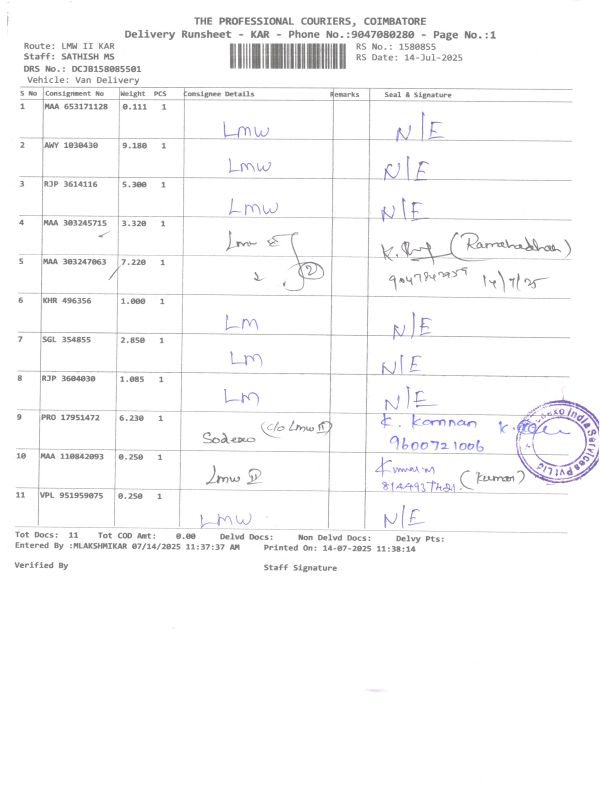 THE PROFESSIONAL COURIERS, COIMBATORE
Delivery Runsheet - KAR - Phone No.:9047080280 - Page No.:1
Route: LMW II KAR
RS No.: 1580855
Staff: SATHISH MS
RS Date: 14-Jul-2025
DRS No.: DCJB158085501
Vehicle: Van Delivery
S No Consignment No Weight PCS Consignee Details Remarks Seal & Signature
1 MAA 653171128 0.111 1 LMW N/E
2 AWY 1030430 9.180 1 LMW N/E
3 RJP 3614116 5.300 1 LMW N/E
4 MAA 303245715 3.320 1 Lmw
5 MAA 303247063 7.220 1 2 14/7/25
6 KHR 496356 1.000 1 LM N/E
7 SGL 354855 2.850 1 LM N/E
8 RJP 3604030 1.085 1 LM N/E
9 PRO 17951472 6.230 1 Sodexo (C/o Lmw II) K. Kannan
9600721006
10 MAA 110842093 0.250 1 Lmw II Kumar.m (Kumar)
11 VPL 951959075 0.250 1 LMW N/E
Tot Docs: 11 Tot COD Amt: 0.00 Delvd Docs: Non Delvd Docs: Delvy Pts:
Entered By :MLAKSHMIKAR 07/14/2025 11:37:37 AM Printed On: 14-07-2025 11:38:14
Verified By
Staff Signature